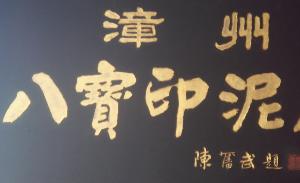 漳州
八寶印泥
陳奮武題